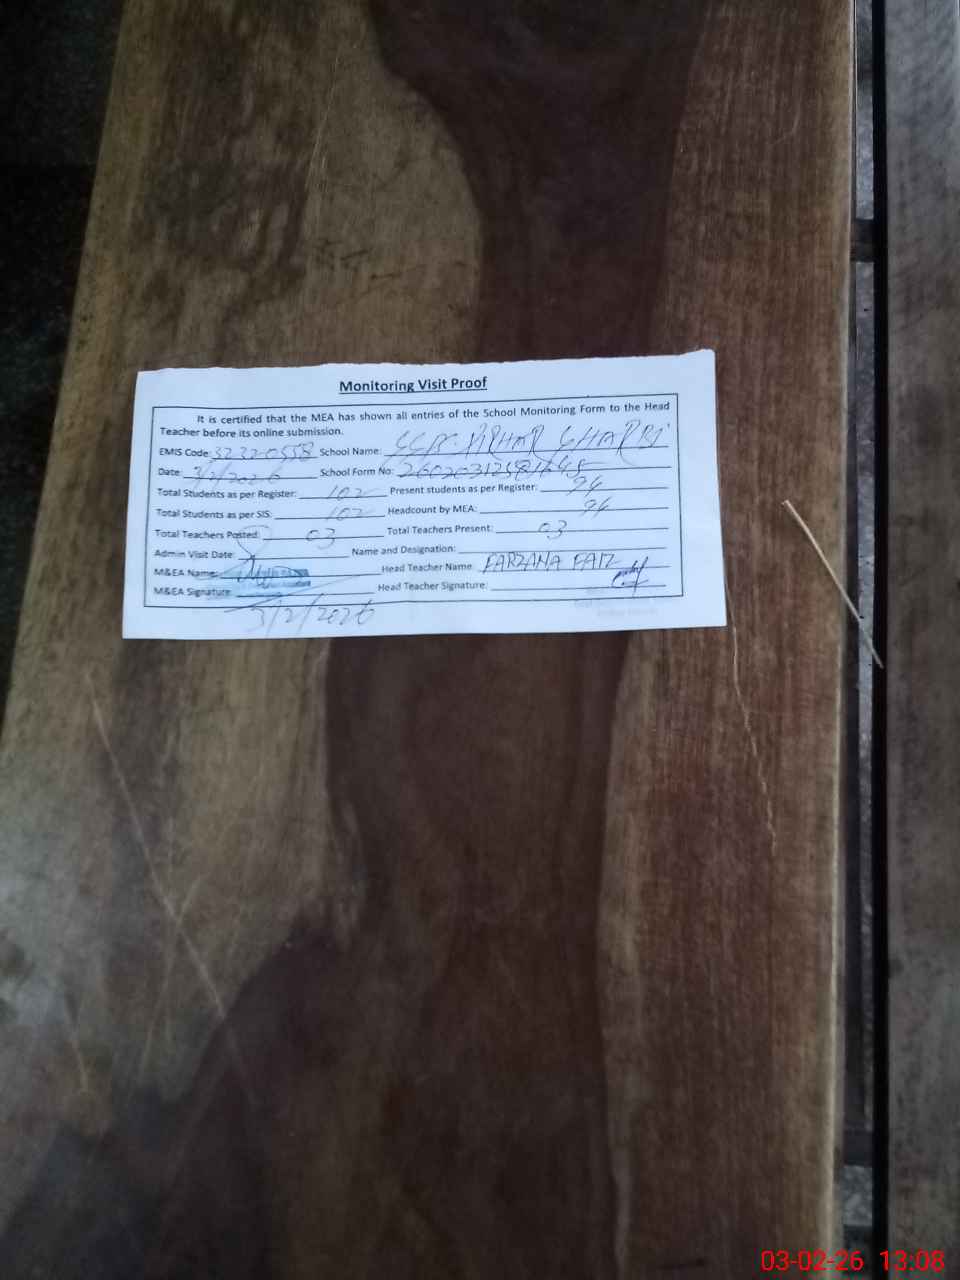 Monitoring Visit Proof
It is certified that the MEA has shown all entries of the School Monitoring Form to the Head
Teacher before its online submission.
EMIS Code: 32320558 School Name: GHARBI
Date: 3/2/2026 School Form No:
Total Students as per Register: 102 Present students as per Register: 94
Total Students as per SIS: 102 Headcount by MEA: 94
Total Teachers Posted: 03 Total Teachers Present: 03
Admin Visit Date: Name and Designation:
M&EA Name: Head Teacher Name: FARZANA FAIZ
M&EA Signature: Head Teacher Signature:
3/2/2026
03-02-26 13:08